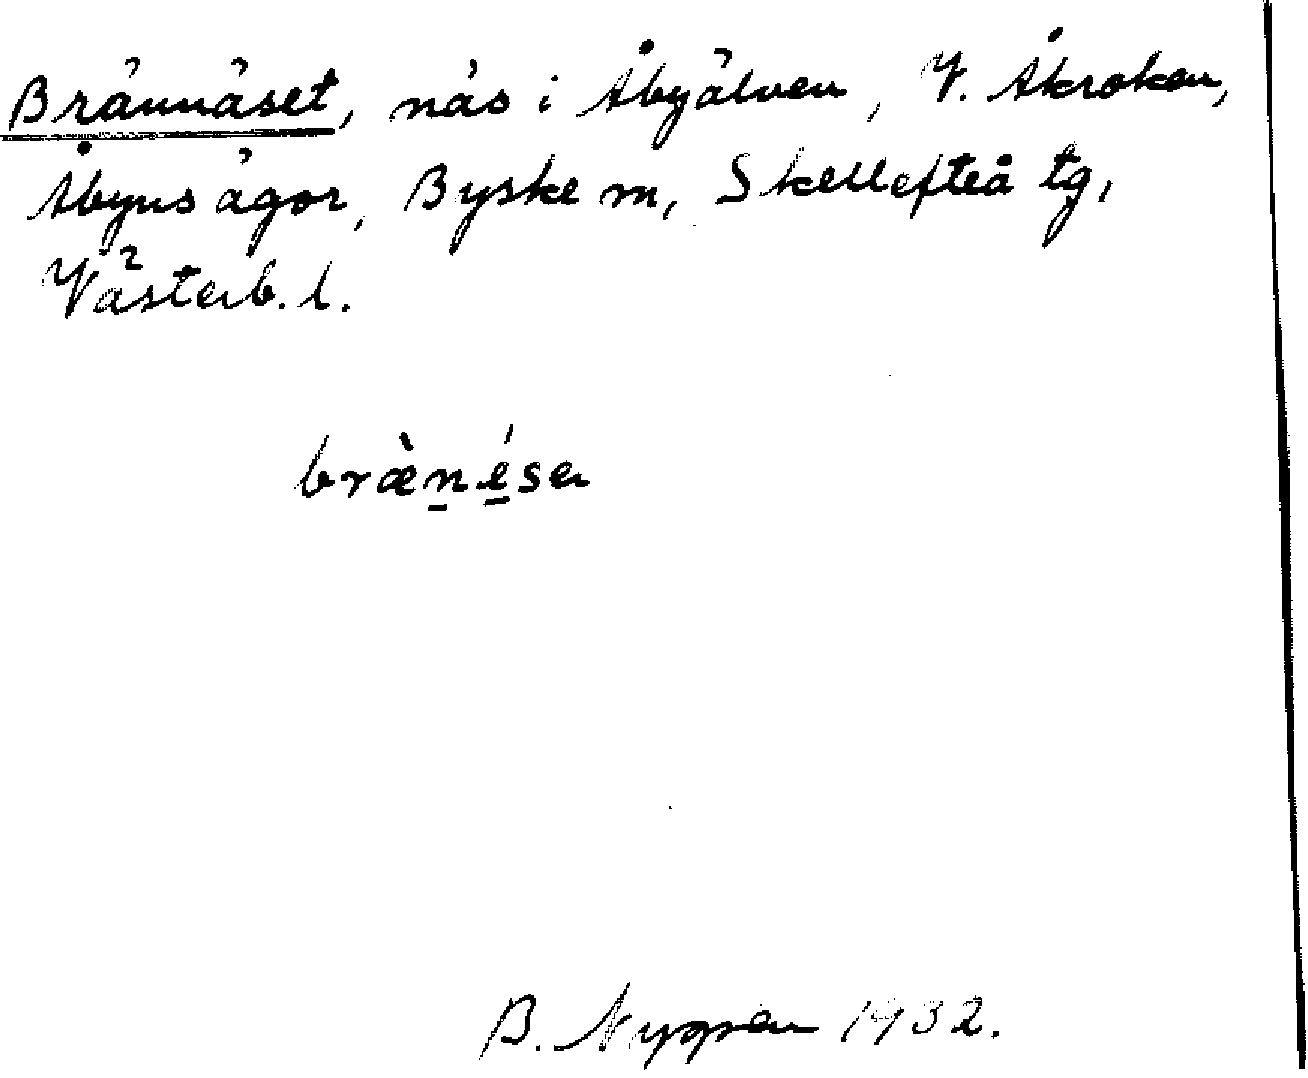 Brännäset, näs i Åbyälven, V. Åkroken,
Åbyns ägor, Byske sn, Skellefteå tg,
Västerb. l.
bræ̀n̲é̲sa
B. Nygren 1932.